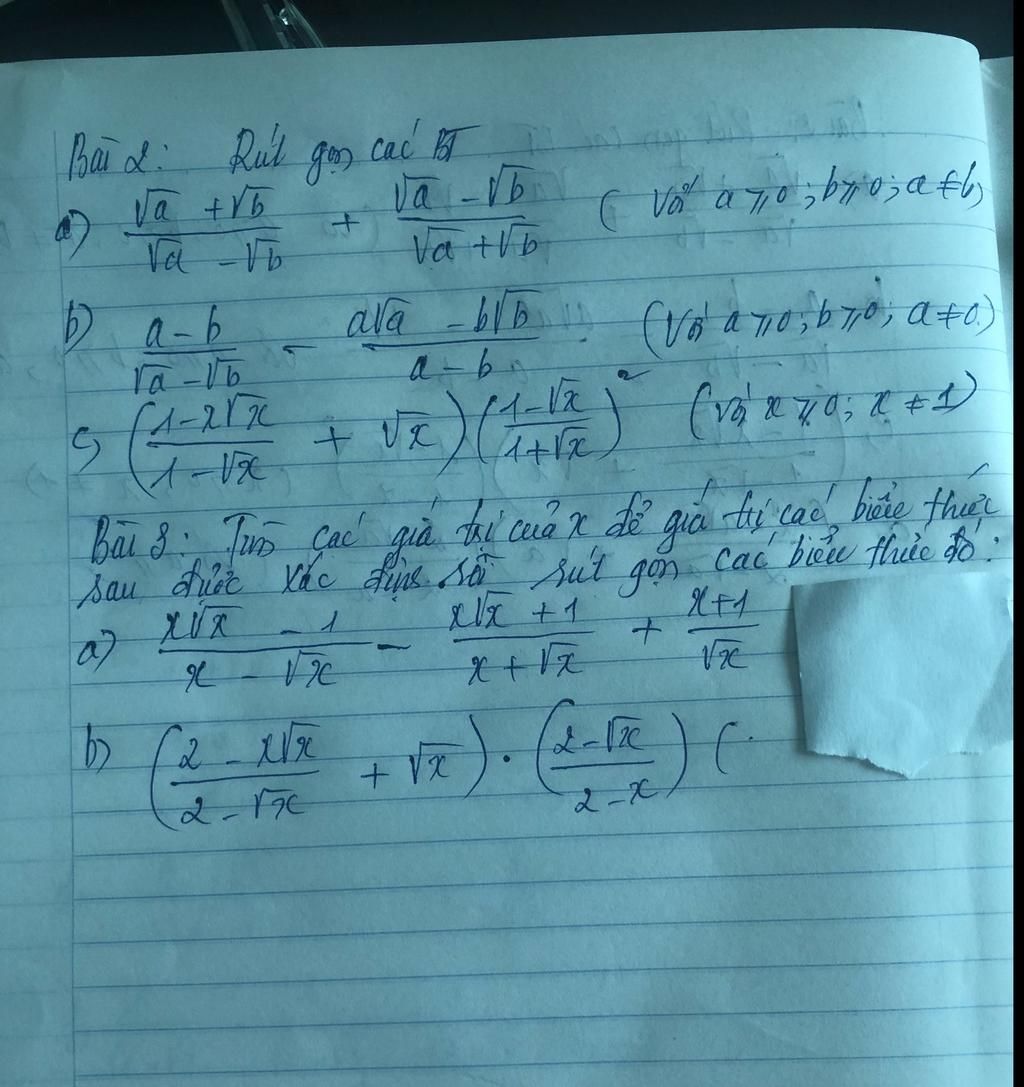 Bài 2: Rút gọn các BT
a) (√a + √b)/(√a - √b) + (√a - √b)/(√a + √b) (với a ⩾ 0; b ⩾ 0; a ≠ b)
b) (a - b)/(√a - √b) - (a√a - b√b)/(a - b) (với a ⩾ 0; b ⩾ 0; a ≠ 0)
c) ((1 - x√x)/(1 - √x) + √x)((1 - √x)/(1 + √x))² (với x ⩾ 0; x ≠ 1)
Bài 3: Tìm các giá trị của x để giá trị các biểu thức
sau được xác định rồi rút gọn các biểu thức đó:
a) (x√x - 1)/(x - √x) - (x√x + 1)/(x + √x) + (x + 1)/√x
b) ((2 - x√x)/(2 - √x) + √x) . ((2 - √x)/(2 - x)) (